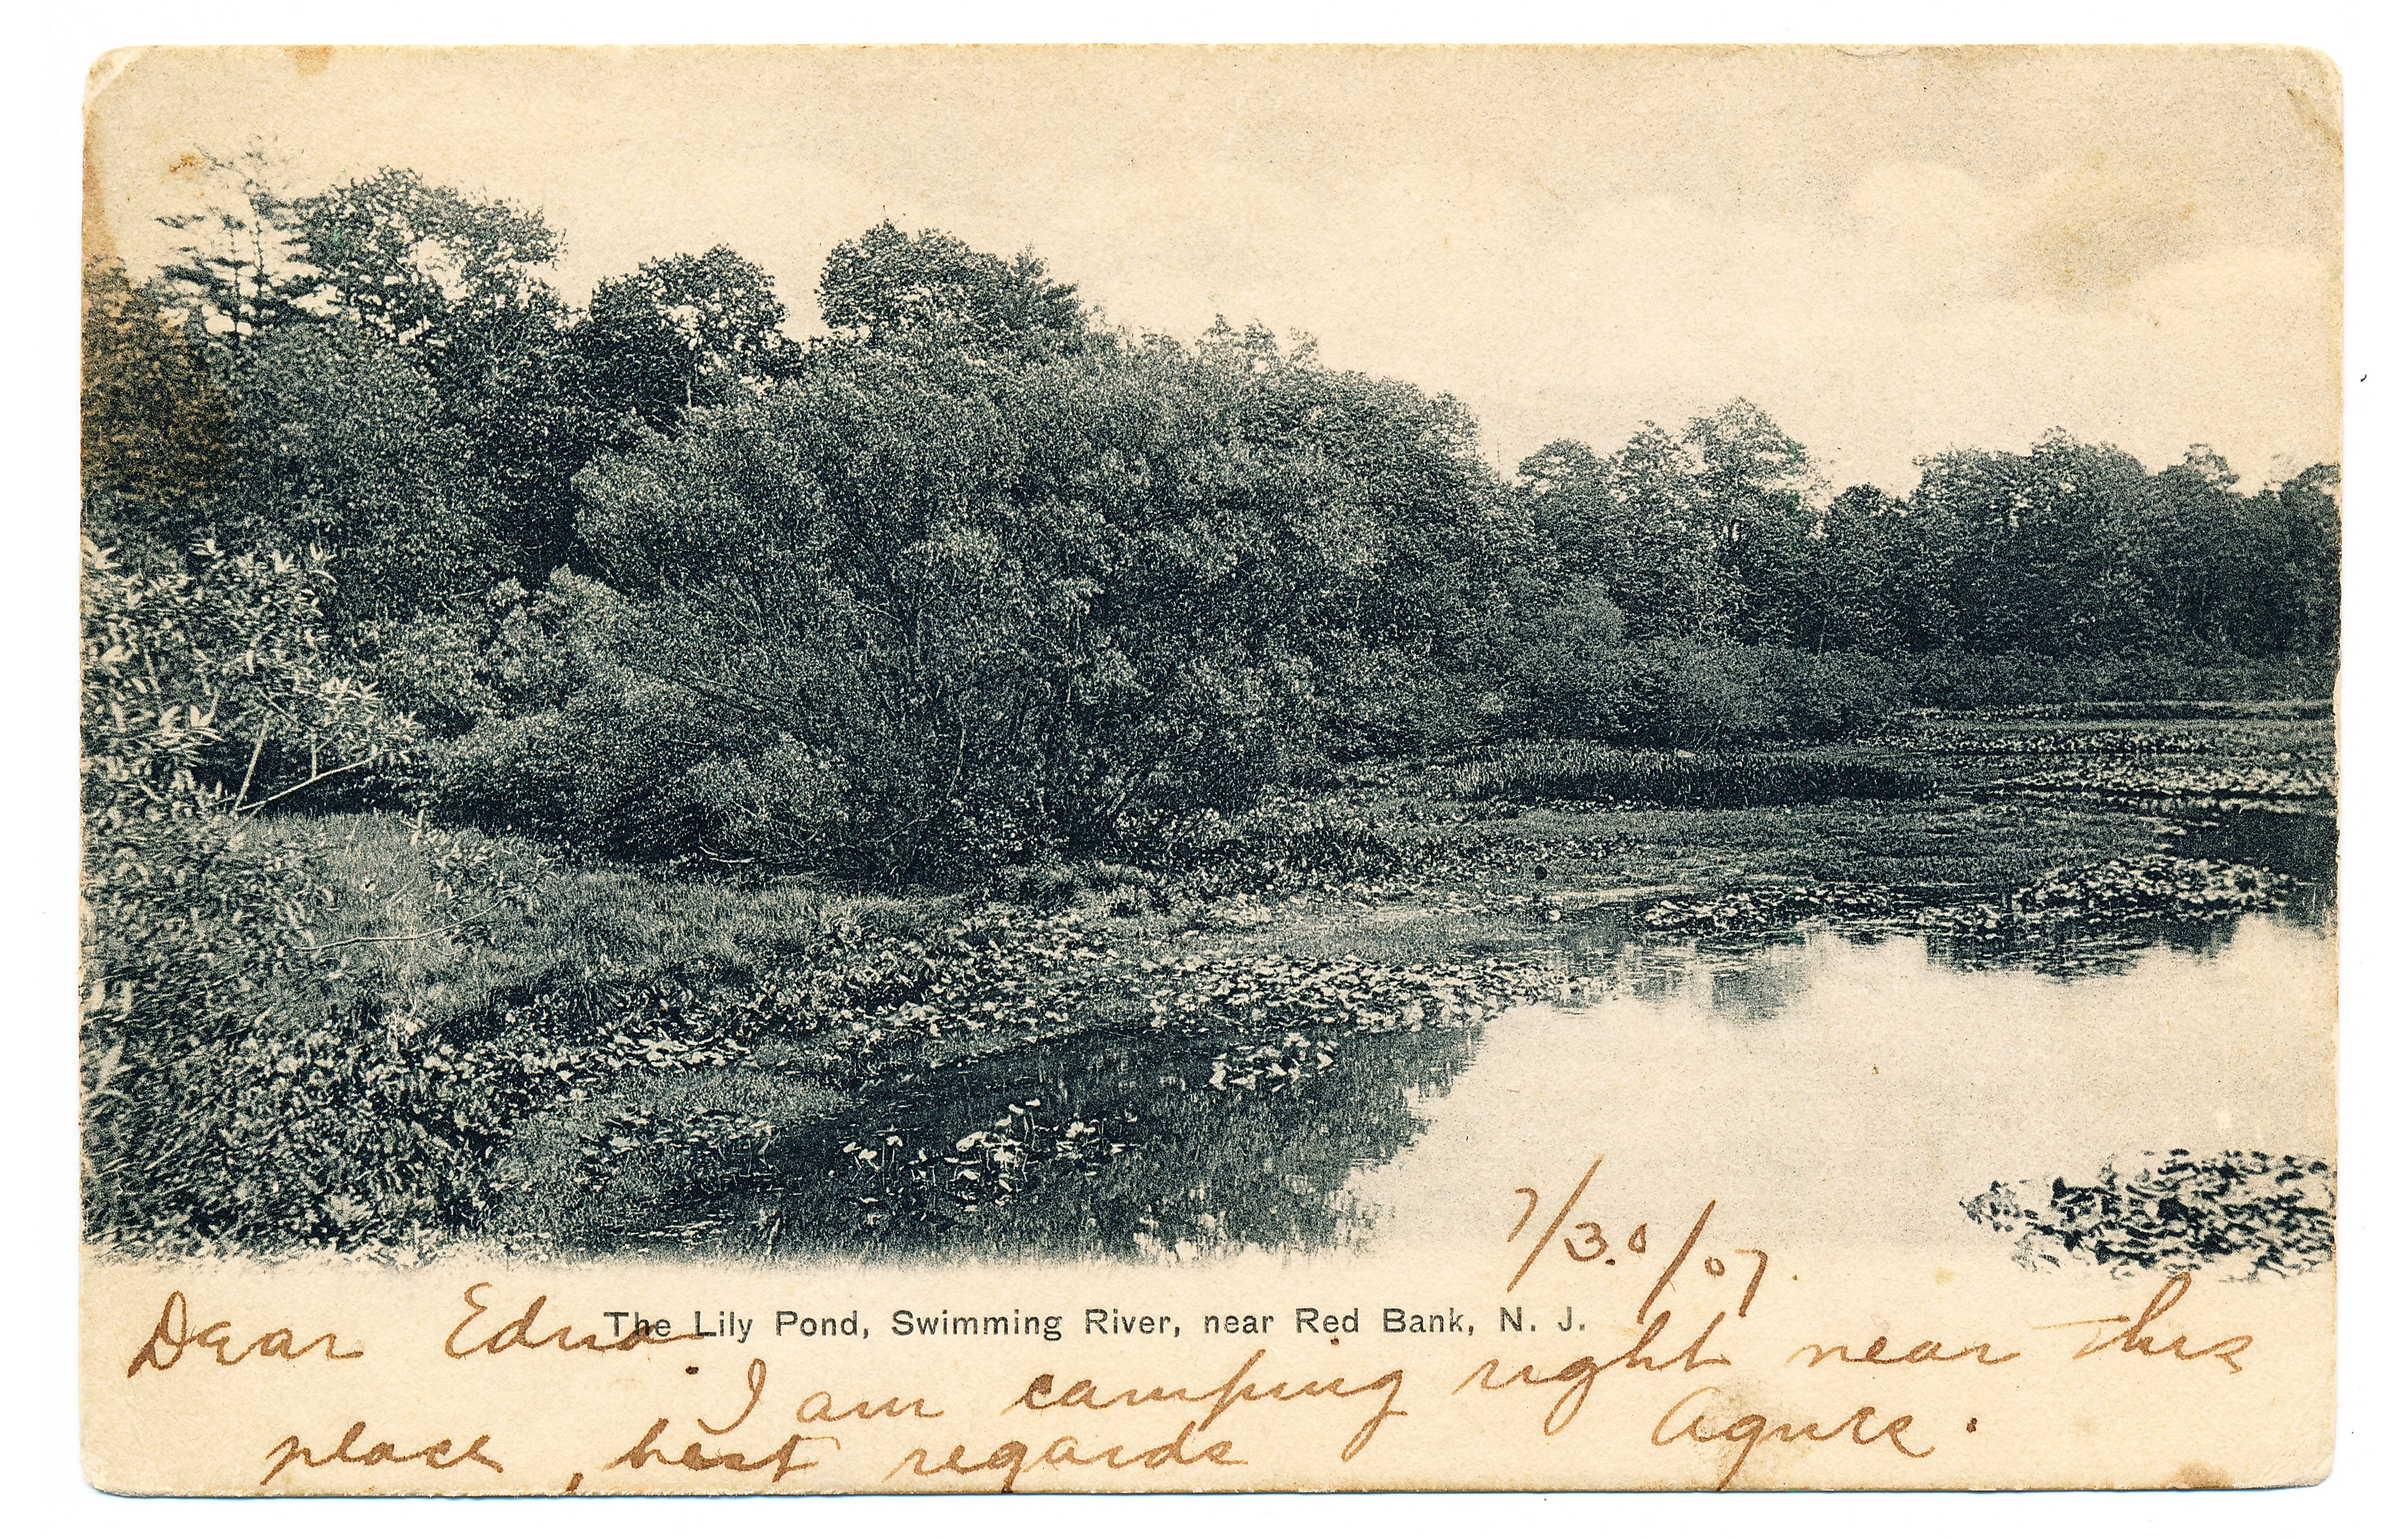 7/30/07.
The Lily Pond, Swimming River, near Red Bank, N. J.
Dear Edna.
I am camping right near this
place, best regards Agnes.